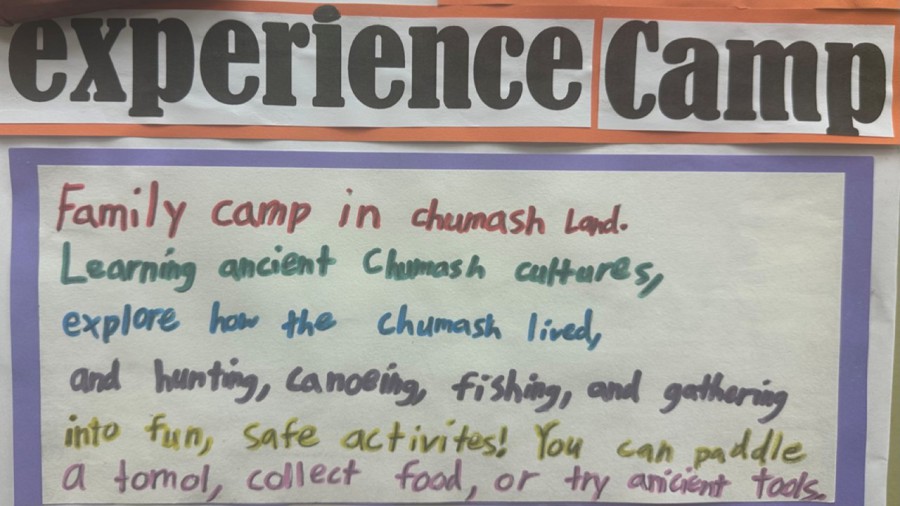 experience Camp
Family camp in chumash Land.
Learning ancient Chumash cultures,
explore how the chumash lived,
and hunting, canoeing, fishing, and gathering
into fun, safe activites! You can paddle
a tomol, collect food, or try anicient tools.